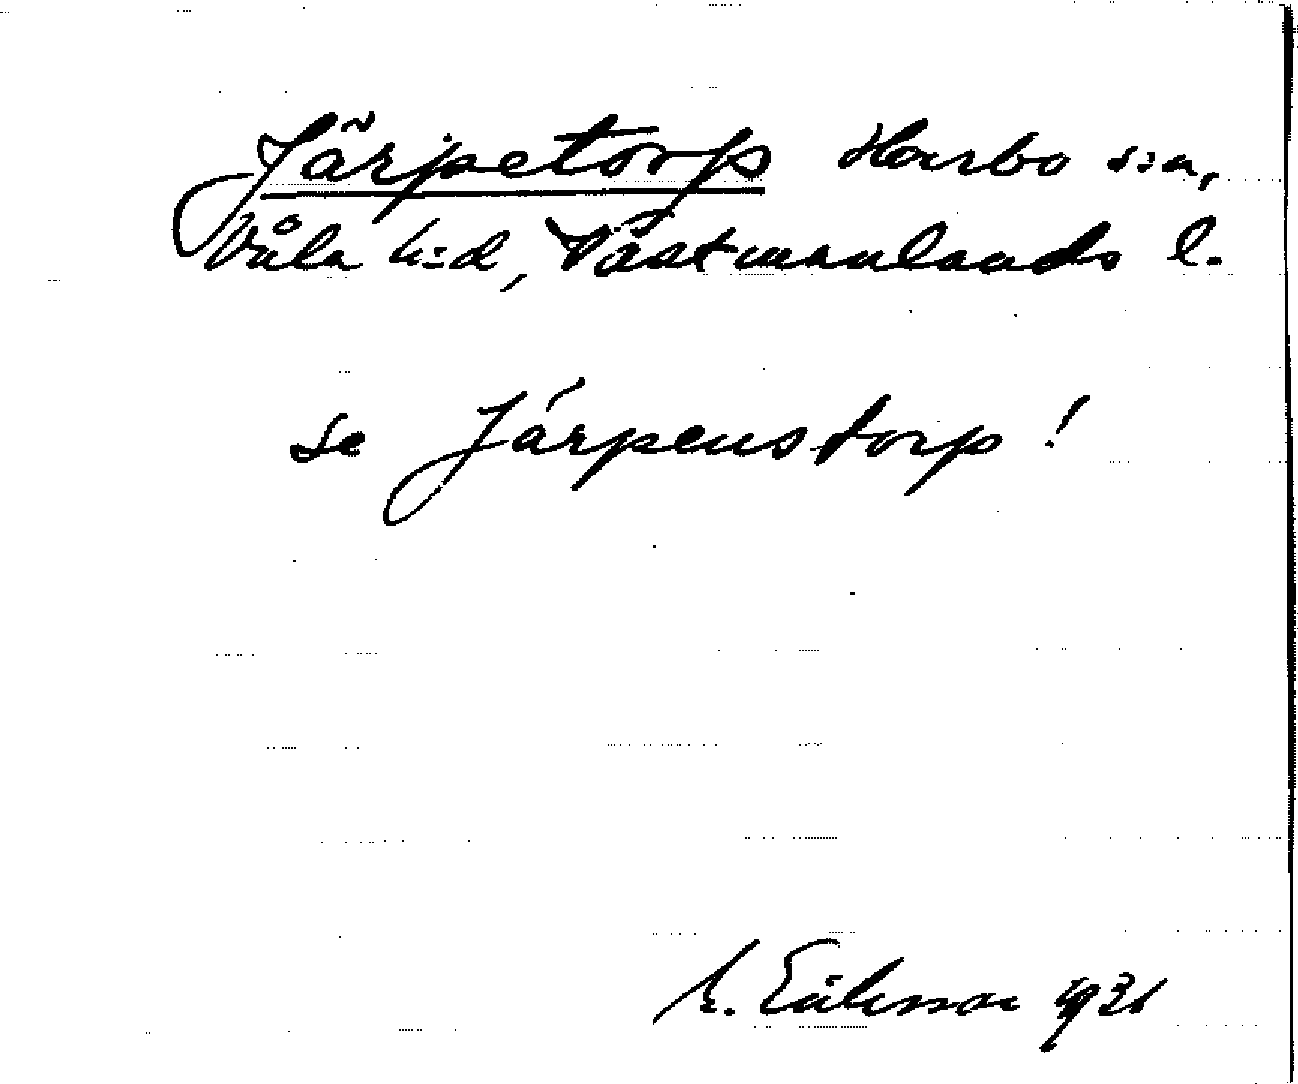 Järpetorp Harbo s:n,
Våla h:d, Västmanlands l.
se Järpenstorp!
1931